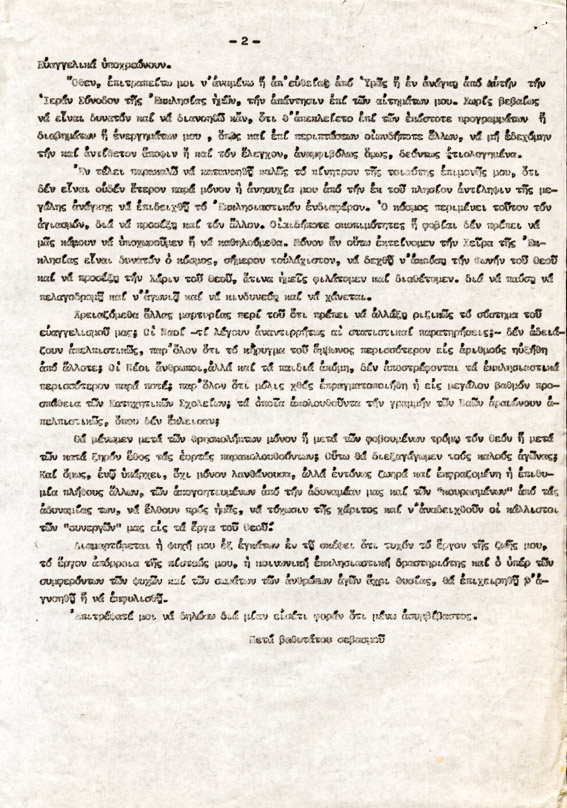 - 2 -
Εὐαγγελικά ὑποχρεώνουν.
Ὅθεν, ἐπιτραπείτω μοι ν'ἀναμένω ἤ ἀπ'εὐθείας ἀπό Ὑμᾶς ἤ ἐν ἀνάγκῃ ἀπό αὐτήν τήν
Ἱεράν Σύνοδον τῆς Ἐκκλησίας ἡμῶν, τήν ἀπάντησιν ἐπί τῶν αἰτημάτων μου. Χωρίς βεβαίως
νά εἶναι δυνατόν καί νά διανοηθῶ κἄν, ὅτι θ'ἀπεκλείετο ἐπί τῶν ἑκάστοτε προγραμμάτων ἤ
διαβημάτων ἤ ἐνεργημάτων μου , ὅπως καί ἐπί περιπτώσεων οἱωνδήποτε ἄλλων, νά μή ἐδεχόμην
τήν καί ἀντίθετον ἄποψιν ἤ καί τόν ἔλεγχον, ἀναμφιβόλως ὅμως, δεόντως ᾐτιολογημένα.
Ἐν τέλει παρακαλῶ νά κατανοηθῇ καλῶς τό κίνητρον τῆς τοιαύτης ἐπιμονῆς μου, ὅτι
δέν εἶναι οὐδέν ἕτερον παρά μόνον ἡ ἀνησυχία μου ἀπό τήν ἐκ τοῦ πλησίον ἀντίληψιν τῆς με-
γάλης ἀνάγκης νά ἐπιδειχθῇ τό Ἐκκλησιαστικόν ἐνδιαφέρον. Ὁ κόσμος περιμένει τοῦτον τόν
ἁγιασμόν, διά νά προσέξῃ καί τόν ἄλλον. Οἱαιδήποτε σκοπιμότητες ἤ φοβίαι δέν πρέπει νά
μᾶς κάμουν νά ὑποχωροῦμεν ἤ νά καθηλούμεθα. Μόνον ἄν οὕτω ἐκτείνομεν τήν Χεῖρα τῆς Ἐκ-
κλησίας εἶναι δυνατόν ὁ κόσμος, σήμερον τουλάχιστον, νά δεχθῇ ν'ἀκούσῃ τήν φωνήν τοῦ Θεοῦ
καί νά προσέξῃ τήν Χάριν τοῦ Θεοῦ, ἅτινα ἡμεῖς φιλάτομεν καί διαθέτομεν. διά νά παύσῃ νά
πελαγοδρομῇ καί ν'ἀγωνιᾷ καί νά κινδυνεύῃ καί νά χάνεται.
Χρειαζόμεθα ἄλλας μαρτυρίας περί τοῦ ὅτι πρέπει νά ἀλλάξῃ ριζικῶς τό σύστημα τοῦ
εὐαγγελισμοῦ μας; Οἱ Ναοί -τί λέγουν ἀναντιρρήτως αἱ στατιστικαί παρατηρήσεις;- δέν ἀδειά-
ζουν ἀπελπιστικῶς, παρ'ὅλον ὅτι τό κήρυγμα τοῦ ἄμβωνος περισσότερον εἰς ἀριθμούς ηὐξήθη
ἀπό ἄλλοτε; Οἱ Νέοι ἄνθρωποι,ἀλλά καί τά παιδιά ἀκόμη, δέν ἀποστρέφονται τά ἐκκλησιαστικά
περισσότερον παρά ποτέ; παρ'ὅλον ὅτι μόλις χθές ἐπραγματοποιήθη ἡ εἰς μεγάλον βαθμόν προ-
σπάθεια τῶν Κατηχητικῶν Σχολείων; τά ὁποῖα ἀκολουθοῦντα τήν γραμμήν τῶν Ναῶν ἀραιώνουν ἀ-
πελπιστικῶς, ὅπου δέν ἔκλεισαν;
Θά μένωμεν μετά τῶν θρησκολήπτων μόνον ἤ μετά τῶν φοβουμένων τρόμῳ τόν Θεόν ἤ μετά
τῶν κατά ξηρόν ἔθος τάς ἑορτάς παρακολουθούντων; Οὕτω θά διεξαγάγωμεν τούς καλούς ἀγῶνας;
Καί ὅμως, ἐνῷ ὑπάρχει, ὄχι μόνον λανθάνουσα, ἀλλά ἐντόνως ζωηρά καί ἐκφραζομένη ἡ ἐπιθυ-
μία πλήθους ἄλλων, τῶν ἀπογοητευμένων ἀπό τήν ἀδυναμίαν μας καί τῶν "κουρασμένων" ἀπό τάς
ἀδυναμίας των, νά ἔλθουν πρός ἡμᾶς, νά τύχωσιν τῆς χάριτος καί ν'ἀναδειχθοῦν οἱ κάλλιστοι
τῶν "συνεργῶν" μας εἰς τά ἔργα τοῦ Θεοῦ.
Διαμαρτύρεται ἡ ψυχή μου ἐξ ἐγκάτων ἐν τῇ σκέψει ὅτι τυχόν τό ἔργον τῆς ζωῆς μου,
τό ἔργον ἀπόρροια τῆς πίστεώς μου, ἡ κοινωνική ἐκκλησιαστική δραστηριότης καί ὁ ὑπέρ τῶν
συμφερόντων τῶν ψυχῶν καί τῶν σωμάτων τῶν ἀνθρώπων ἀγών ἄχρι θυσίας, θά ἐπιχειρηθῇ ν'ἀ-
γνοηθῇ ἤ νά ἐκφυλισθῇ.
Ἐπιτρέψατέ μοι νά δηλώσω διά μίαν εἰσέτι φοράν ὅτι μένω ἀσυμβίβαστος.
Μετά βαθυτάτου σεβασμοῦ